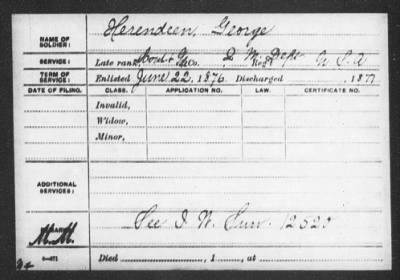 NAME OF SOLDIER: Herendeen, George
SERVICE: Late rank, Co. Q M Dept Reg't U S A
TERM OF SERVICE: Enlisted June 22, 1876. Discharged , 1877
DATE OF FILING. CLASS. APPLICATION NO. LAW. CERTIFICATE NO.
Invalid,
Widow,
Minor,
ADDITIONAL SERVICES:
See I. W. Surv. 12520
M.M.
Died , 1 , at